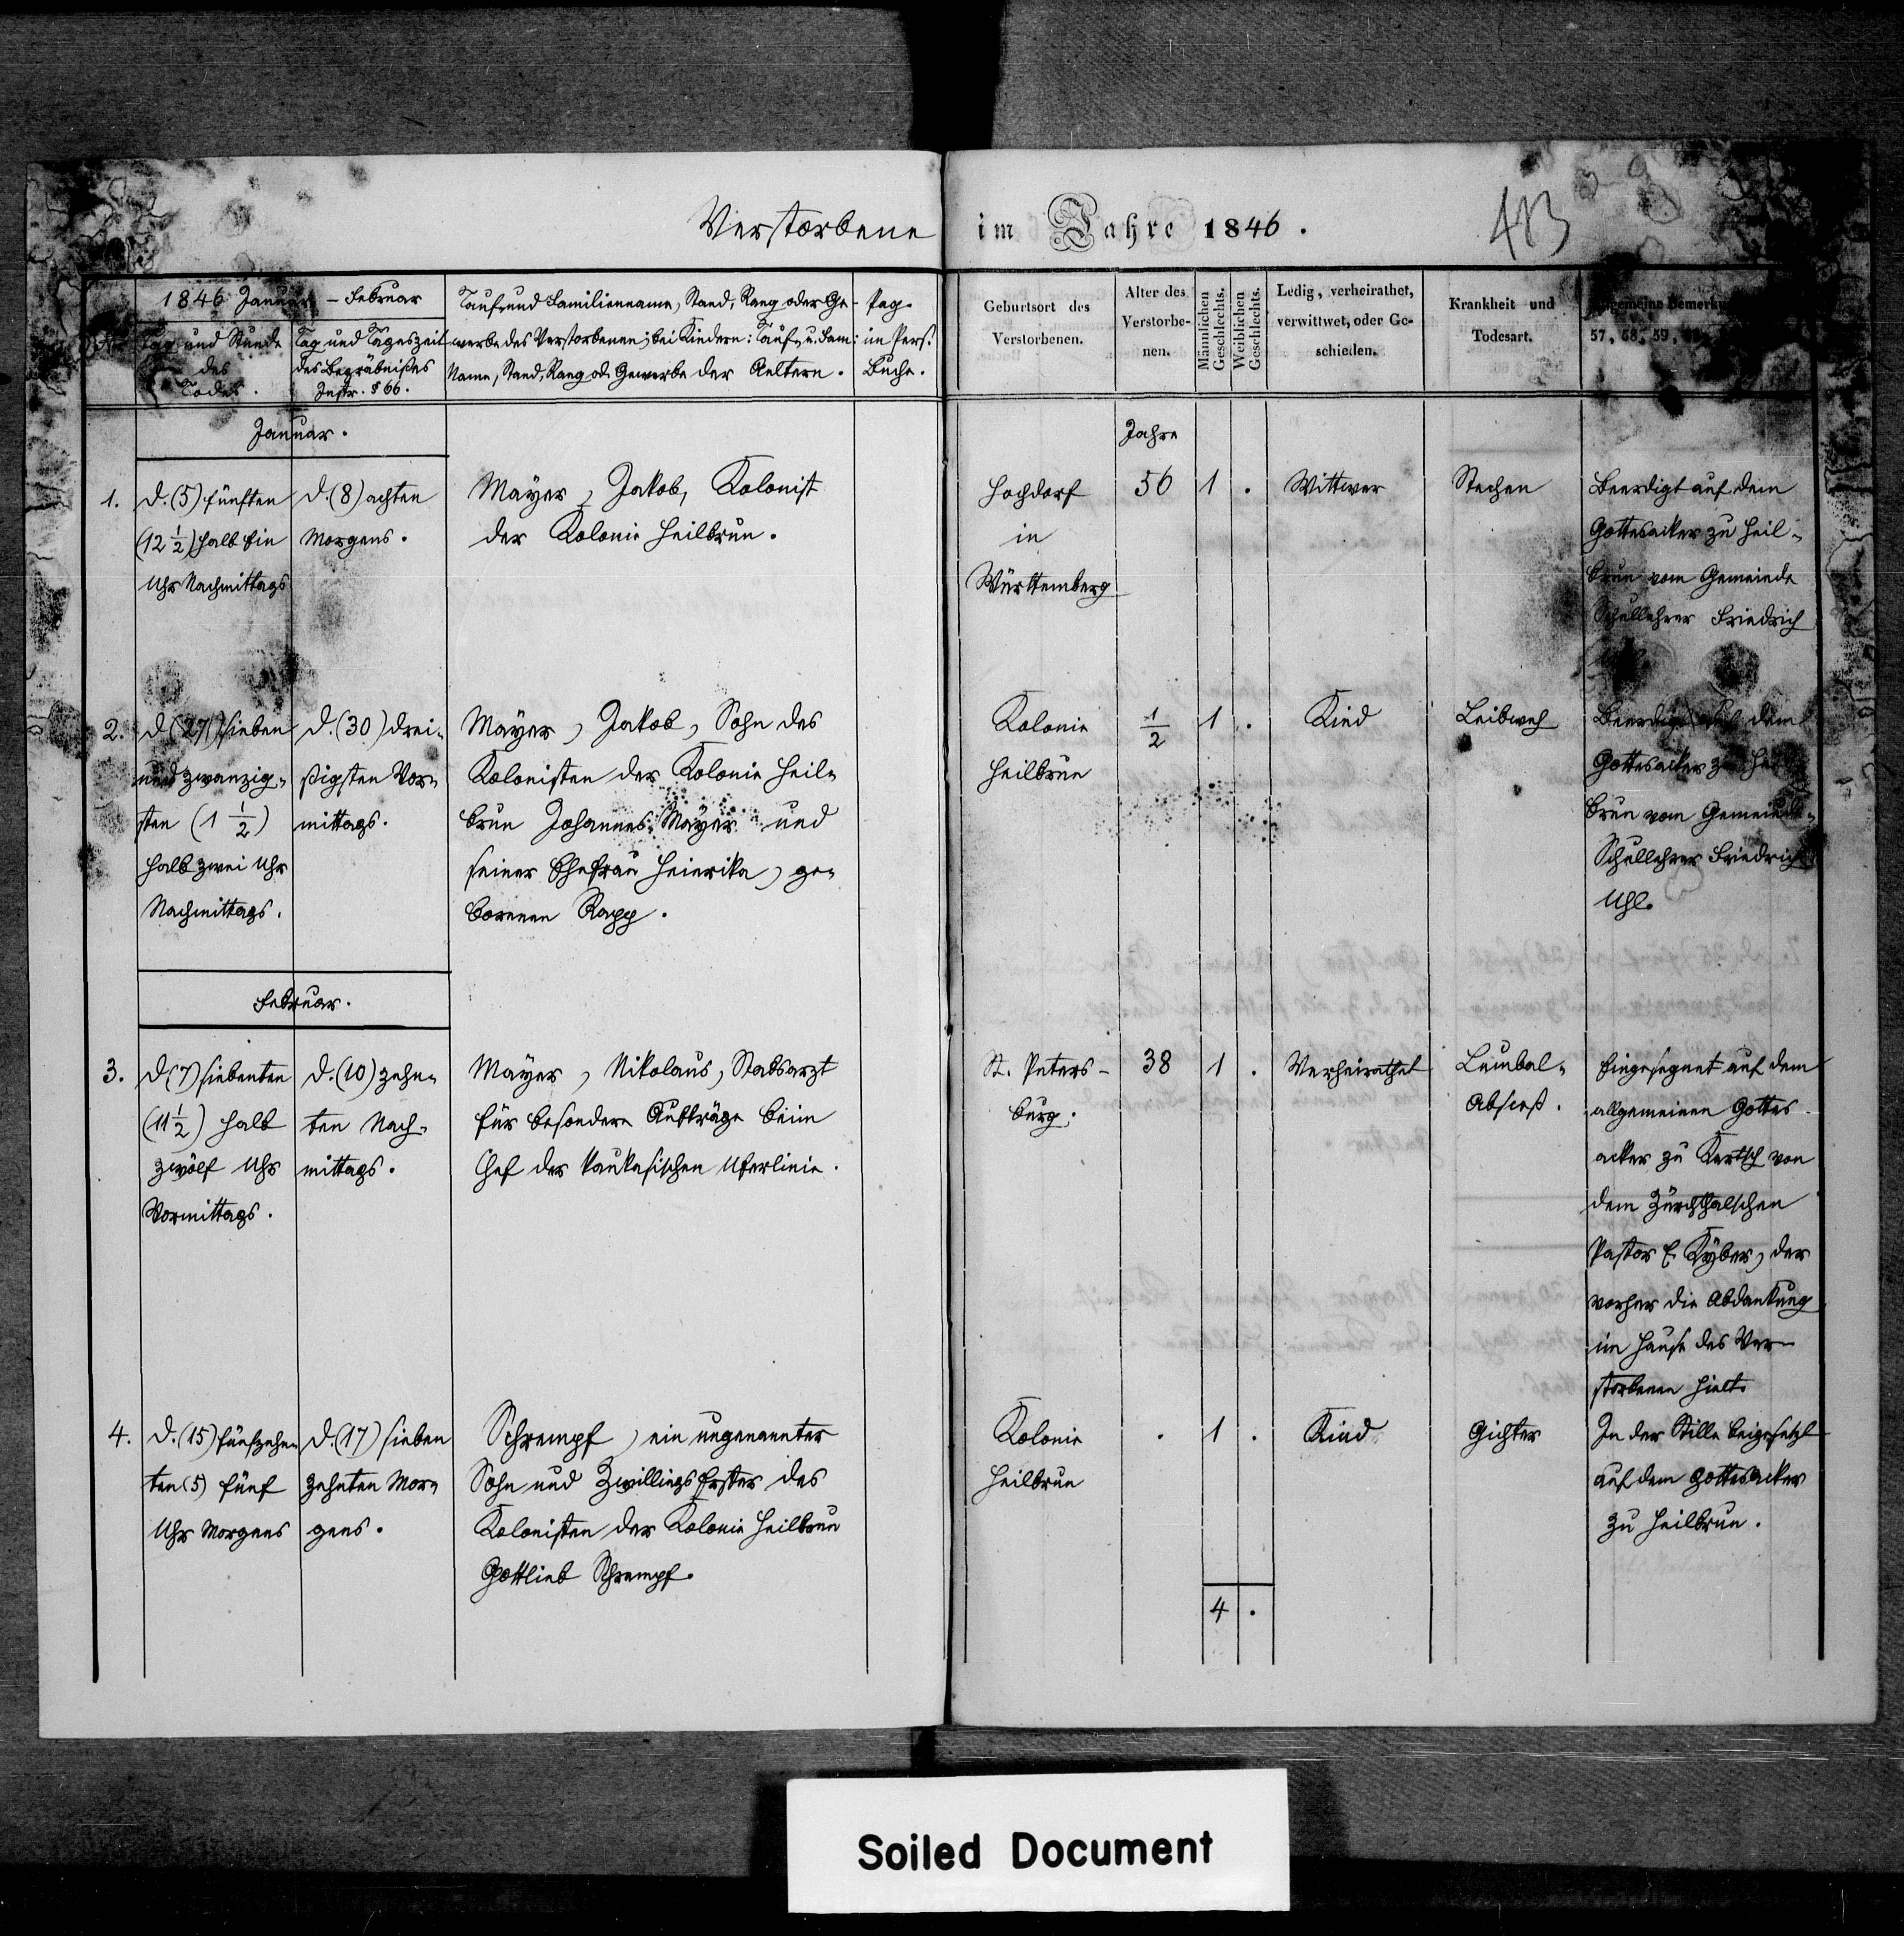 Verstorbene im Jahre 1846.
413
1846 Januar - Februar
Tag und Stunde
des
Todes.
Tag und Tageszeit
des Begräbnißes
Instr. § 66.
Tauf- und Familienname, Stand, Rang oder Ge-
werbe des Verstorbenen; bei Kindern: Tauf- u. Fam:
Name, Stand, Rang od. Gewerbe der Aeltern.
Pag.
im Pers.
Buche.
Geburtsort des
Verstorbenen.
Alter des
Verstorbe-
nen.
Männlichen
Geschlechts.
Weiblichen
Geschlechts.
Ledig, verheirathet,
verwittwet, oder Ge-
schieden.
Krankheit und
Todesart.
57, 58, 59,
Januar.
Jahre
1.
d. (5) fünften
(12 ½) halb Ein
Uhr Nachmittags
d. (8) achten
Morgens.
Mayer, Jakob, Kolonist
der Kolonie Heilbrun.
Hochdorf
in
Württemberg
56
1
.
Wittwer
Stechen
Beerdigt auf dem
Gottesacker zu Heil-
brun vom Gemeinde
Schullehrer Friedrich
2.
d. (27) sieben
und zwanzig-
sten (1 ½)
halb zwei Uhr
Nachmittags.
d. (30) drei-
ßigsten Vor-
mittags.
Mayer, Jakob, Sohn des
Kolonisten der Kolonie Heil-
brun Johannes Mayer und
seiner Ehefrau Heinrika, ge-
borenen Rapp.
Kolonie
Heilbrun
½
1
.
Kind
Leibweh
Beerdigt auf dem
Gottesacker zu Heil
brun vom Gemeinde-
Schullehrer Friedrich
Uhl.
Februar.
3.
d. (7) siebenten
(11 ½) halb
zwölf Uhr
Vormittags.
d. (10) zehn-
ten Nach-
mittags.
Mayer, Nikolaus, Stabsarzt
für besondere Aufträge beim
Chef der kaukasischen Uferlinie.
St. Peters-
burg.
38
1
.
Verheirathet
Lumbal-
Absceß.
Eingesegnet auf dem
allgemeinen Gottes
acker zu Kertsch von
dem Zürchthalschen
Pastor E. Kyber, der
vorher die Abdankung
im Hause des Ver-
storbenen hielt.
4.
d. (15) fünfzehn-
ten (5) fünf
Uhr Morgens
d. (17) sieben
zehnten Mor-
gens.
Schrempf, ein ungenannter
Sohn und Zwillings Erster des
Kolonisten der Kolonie Heilbrun
Gottlieb Schrempf.
Kolonie
Heilbrun
.
1
.
Kind
Gichter
In der Stille beigesetzt
auf dem Gottesacker
zu Heilbrun.
4
.
Soiled Document